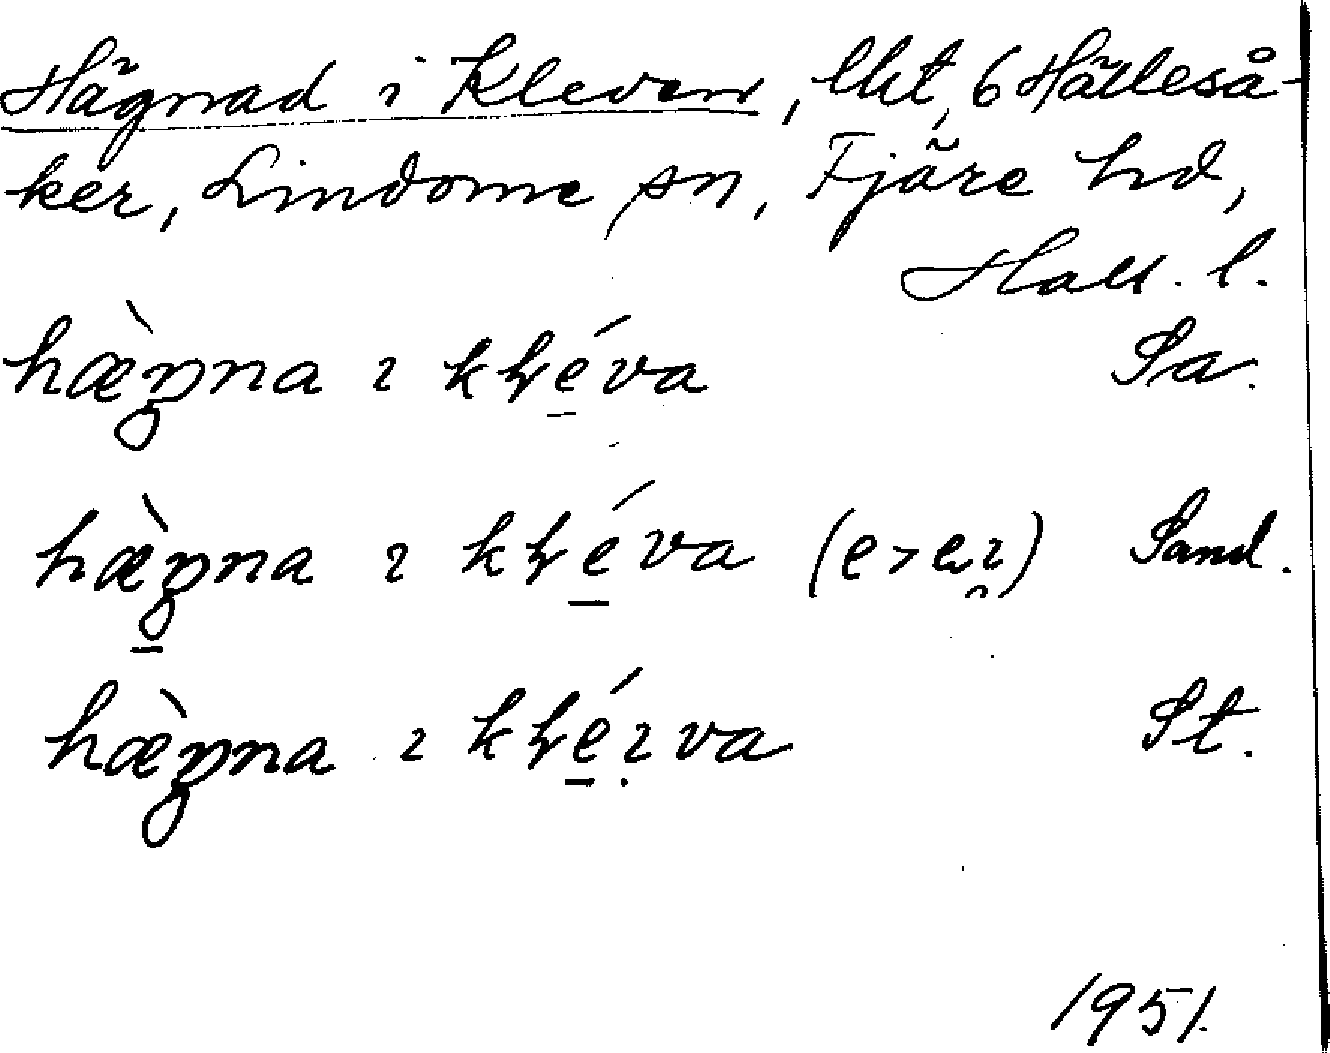 Hägnad i Kleven, lht, 6 Hälleså-
ker, Lindome sn, Fjäre hd,
Hall. l.
hæ̀ŋna ɩ kɫé̠va Sa.
hæ̀ŋ̠na ɩ kɫé̠va (e>eɩ̯) Sand.
hæ̀ŋna ɩ kɫé̠ɩ̣va St.
1951.